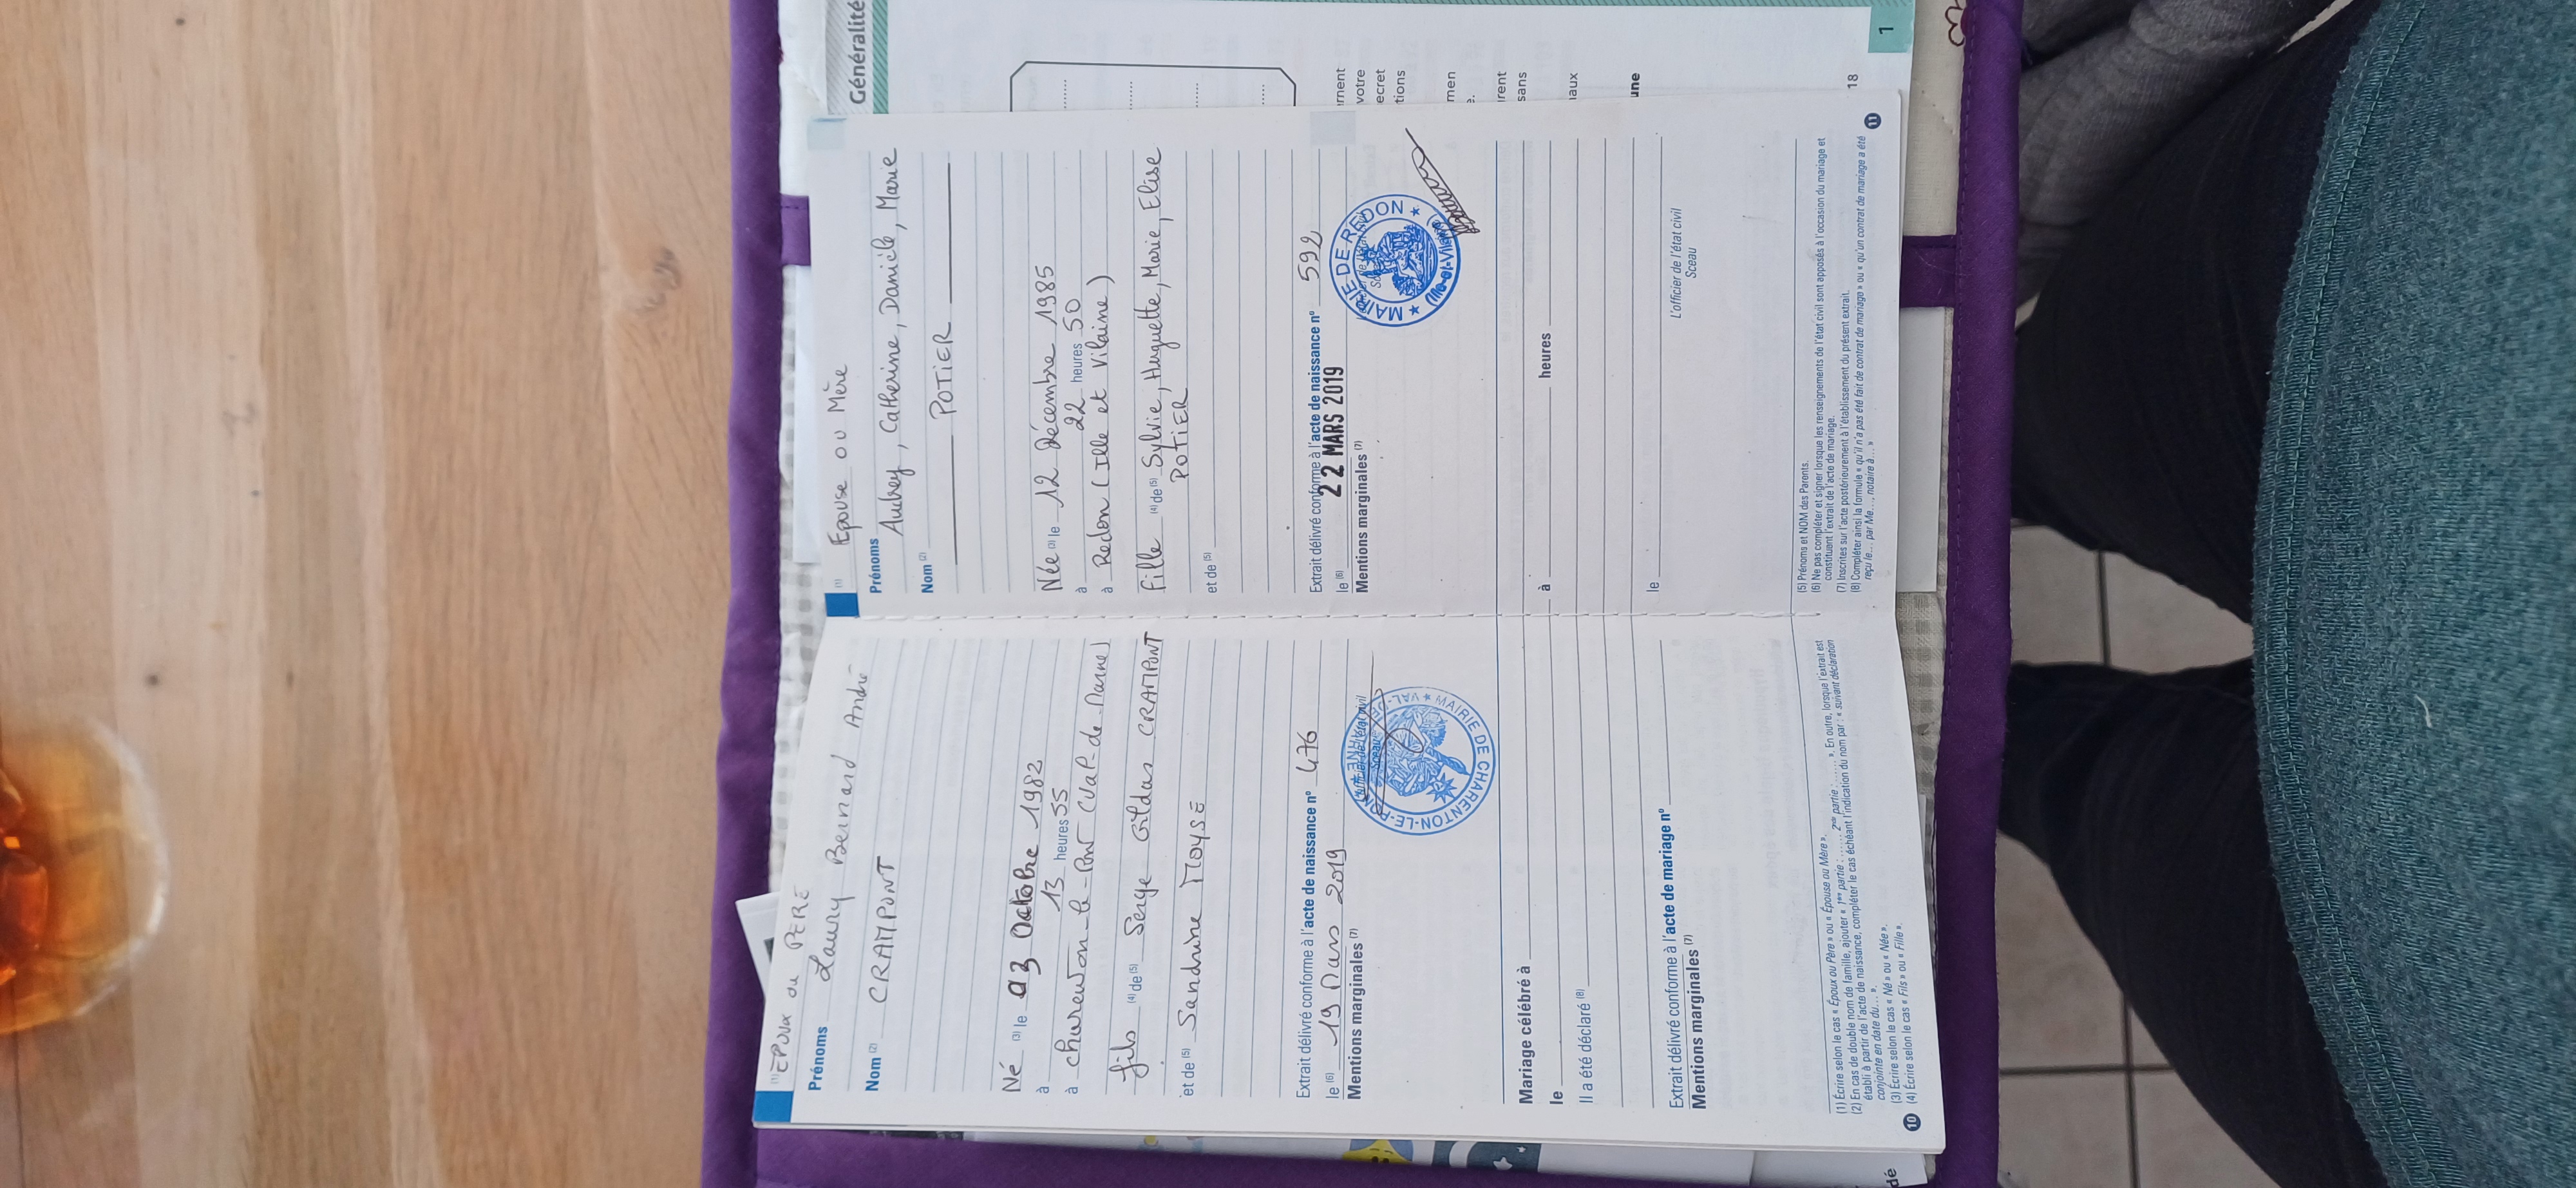 (1) EPOUX ou PERE
Prénoms Laury Bernard André
Nom (2) CRAMPONT
Né (3) le 03 Octobre 1982
à 13 heures 55
à Charenton-le-Pont (Val-de-Marne)
fils (4) de (5) Serge Gildas CRAMPONT
et de (5) Sandrine MOYSE
Extrait délivré conforme à l'acte de naissance n° 476
le (6) 19 Mars 2019
Mentions marginales (7)
L'officier de l'état civil
Sceau
MAIRIE DE CHARENTON-LE-PONT ★ VAL-DE-MARNE ★
Mariage célébré à
le
Il a été déclaré (8)
Extrait délivré conforme à l'acte de mariage n°
Mentions marginales (7)
(1) Écrire selon le cas « Époux ou Père » ou « Épouse ou Mère ».
(2) En cas de double nom de famille, ajouter « 1re partie : ...... 2nde partie : ...... ». En outre, lorsque l'extrait est
établi à partir de l'acte de naissance, compléter le cas échéant l'indication du nom par : « suivant déclaration
conjointe en date du... ».
(3) Écrire selon le cas « Né » ou « Née ».
(4) Écrire selon le cas « Fils » ou « Fille ».
10
(1) Epouse ou Mère
Prénoms Audrey, Catherine, Danièle, Marie
Nom (2) POTIER
Née (3) le 12 Décembre 1985
à 22 heures 50
à Redon (Ille et Vilaine)
Fille (4) de (5) Sylvie, Huguette, Marie, Elise
POTIER
et de (5)
Extrait délivré conforme à l'acte de naissance n° 592
le (6) 22 MARS 2019
Mentions marginales (7)
★ MAIRIE DE REDON ★
(Ille-et-Vilaine)
à heures
le
L'officier de l'état civil
Sceau
(5) Prénoms et NOM des Parents.
(6) Ne pas compléter et signer lorsque les renseignements de l'état civil sont apposés à l'occasion du mariage et
constituent l'extrait de l'acte de mariage.
(7) Inscrites sur l'acte postérieurement à l'établissement du présent extrait.
(8) Compléter ainsi la formule « qu'il n'a pas été fait de contrat de mariage » ou « qu'un contrat de mariage a été
reçu le... par Me..., notaire à... »
11
Généralité
ement
votre
ecret
tions
men
e.
rent
sans
aux
une
18
1
dé